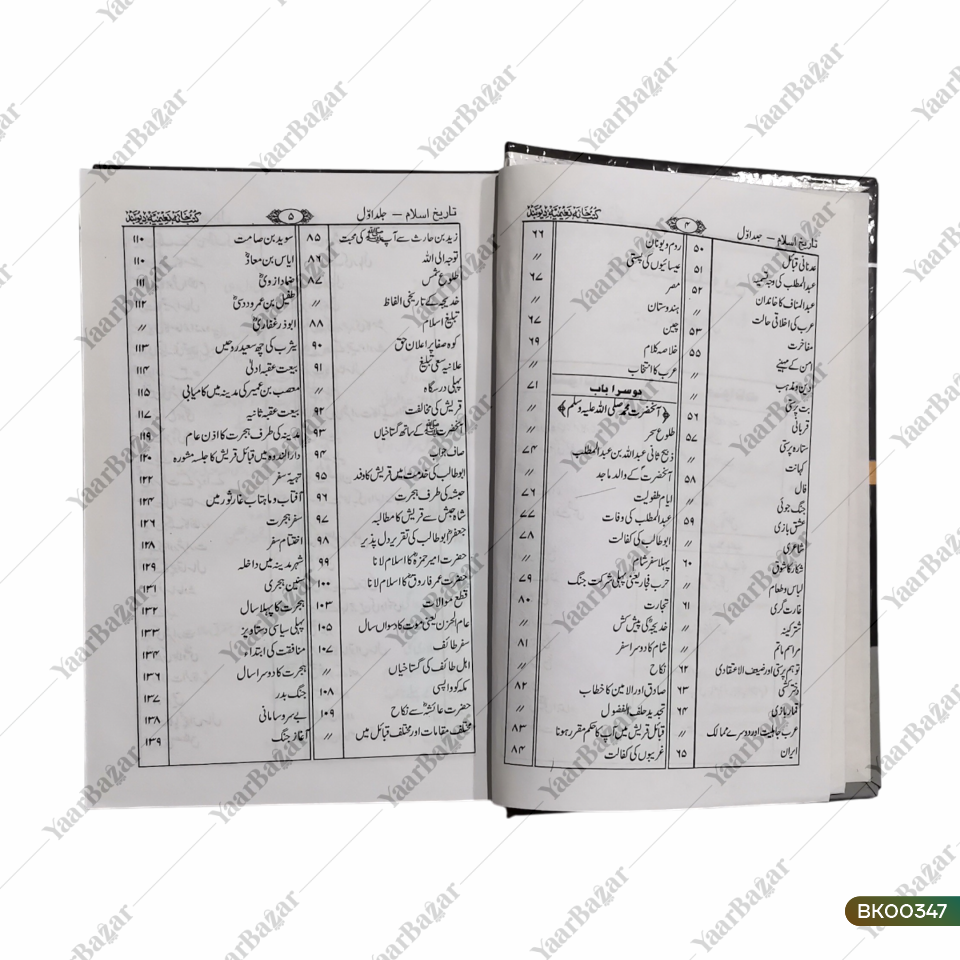 تاریخ اسلام – جلد اوّل
۴
کتب خانہ نعیمیہ دیوبند
عدنانی قبائل ۵۰
عبدالمطلب کی وجہ تسمیہ ۵۱
عبدالمناف کا خاندان ۵۲
عرب کی اخلاقی حالت
مفاخرت ۵۳
امن کے مہینے ۵۵
دین و مذہب
بت پرستی ۵۶
قربانی
ستارہ پرستی ۵۷
کہانت
فال ۵۸
جنگ جوئی
عشق بازی ۵۹
شاعری
شکار کا شوق ۶۰
لباس و طعام
غارت گری ۶۱
شتر کینہ
مراسم ماتم
توہم پرستی اور ضعیف الاعتقادی ۶۲
دختر کشی ۶۳
قمار بازی ۶۴
عرب جاہلیت اور دوسرے ممالک
ایران ۶۵
روم و یونان ۶۶
عیسائیوں کی پستی
مصر ۶۷
ہندوستان
چین ۶۷
خلاصہ کلام ۶۹
عرب کا انتخاب
دوسرا باب ۷۱
﴿آنحضرت محمد صلی اللہ علیہ وسلم﴾
طلوع سحر
ذبیح ثانی عبداللہ بن عبدالمطلب ۷۴
آنحضرتؐ کے والد ماجد
ایام طفولیت ۷۶
عبدالمطلب کی وفات ۷۷
ابوطالب کی کفالت ۷۸
پہلا سفر شام
حرب فجار یعنی پہلی شرکت جنگ ۷۹
تجارت ۸۰
خدیجہؓ کی پیش کش
شام کا دوسرا سفر ۸۱
نکاح
صادق اور الامین کا خطاب ۸۲
تجدید حلف الفضول
قبائل قریش میں آپ کا حکم مقرر ہونا ۸۳
غریبوں کی کفالت ۸۴
تاریخ اسلام – جلد اوّل
۵
کتب خانہ نعیمیہ دیوبند
زید بن حارث سے آپ ﷺ کی محبت ۸۵
توجہ الی اللہ ۸۶
طلوع شمس ۸۷
خدیجہ کے تاریخی الفاظ 〃
تبلیغ اسلام ۸۸
کوہ صفا پر اعلان حق ۹۰
علانیہ سعی تبلیغ ۹۱
پہلی درسگاہ 〃
قریش کی مخالفت ۹۲
آنحضرت ﷺ کے ساتھ گستاخیاں ۹۳
صاف جواب ۹۴
ابوطالب کی خدمت میں قریش کا وفد ۹۵
حبشہ کی طرف ہجرت ۹۶
شاہ حبش سے قریش کا مطالبہ ۹۷
جعفر بن ابوطالب کی تقریر دل پذیر ۹۸
حضرت امیر حمزہؓ کا اسلام لانا ۹۹
حضرت عمر فاروقؓ کا اسلام لانا ۱۰۰
قطع موالات ۱۰۳
عام الحزن یعنی نبوت کا دسواں سال ۱۰۵
سفر طائف ۱۰۷
اہل طائف کی گستاخیاں 〃
مکہ کو واپسی ۱۰۸
حضرت عائشہؓ سے نکاح ۱۰۹
مختلف مقامات اور مختلف قبائل میں 〃
سوید بن صامت ۱۱۰
ایاس بن معاذؓ ۱۱۰
ضماد ازدیؓ ۱۱۱
طفیل بن عمرو دوسیؓ ۱۱۲
ابوذر غفاریؓ 〃
یثرب کی چھ سعید روحیں ۱۱۳
بیعت عقبہ اولیٰ ۱۱۴
مصعب بن عمیر کی مدینہ میں کامیابی ۱۱۵
بیعت عقبہ ثانیہ ۱۱۷
مدینہ کی طرف ہجرت کا اذن عام ۱۱۹
دارالندوہ میں قبائل قریش کا جلسہ مشورہ ۱۲۰
تہیہ سفر ۱۲۲
آفتاب و ماہتاب غار ثور میں ۱۲۴
سفر ہجرت ۱۲۶
اختتام سفر ۱۲۸
شہر مدینہ میں داخلہ ۱۲۹
سنین ہجری ۱۳۱
ہجرت کا پہلا سال ۱۳۲
پہلی سیاسی دستاویز ۱۳۳
منافقت کی ابتداء ۱۳۴
ہجرت کا دوسرا سال ۱۳۶
جنگ بدر ۱۳۷
بے سرو سامانی ۱۳۸
آغاز جنگ ۱۳۹
YaarBazar
BK00347